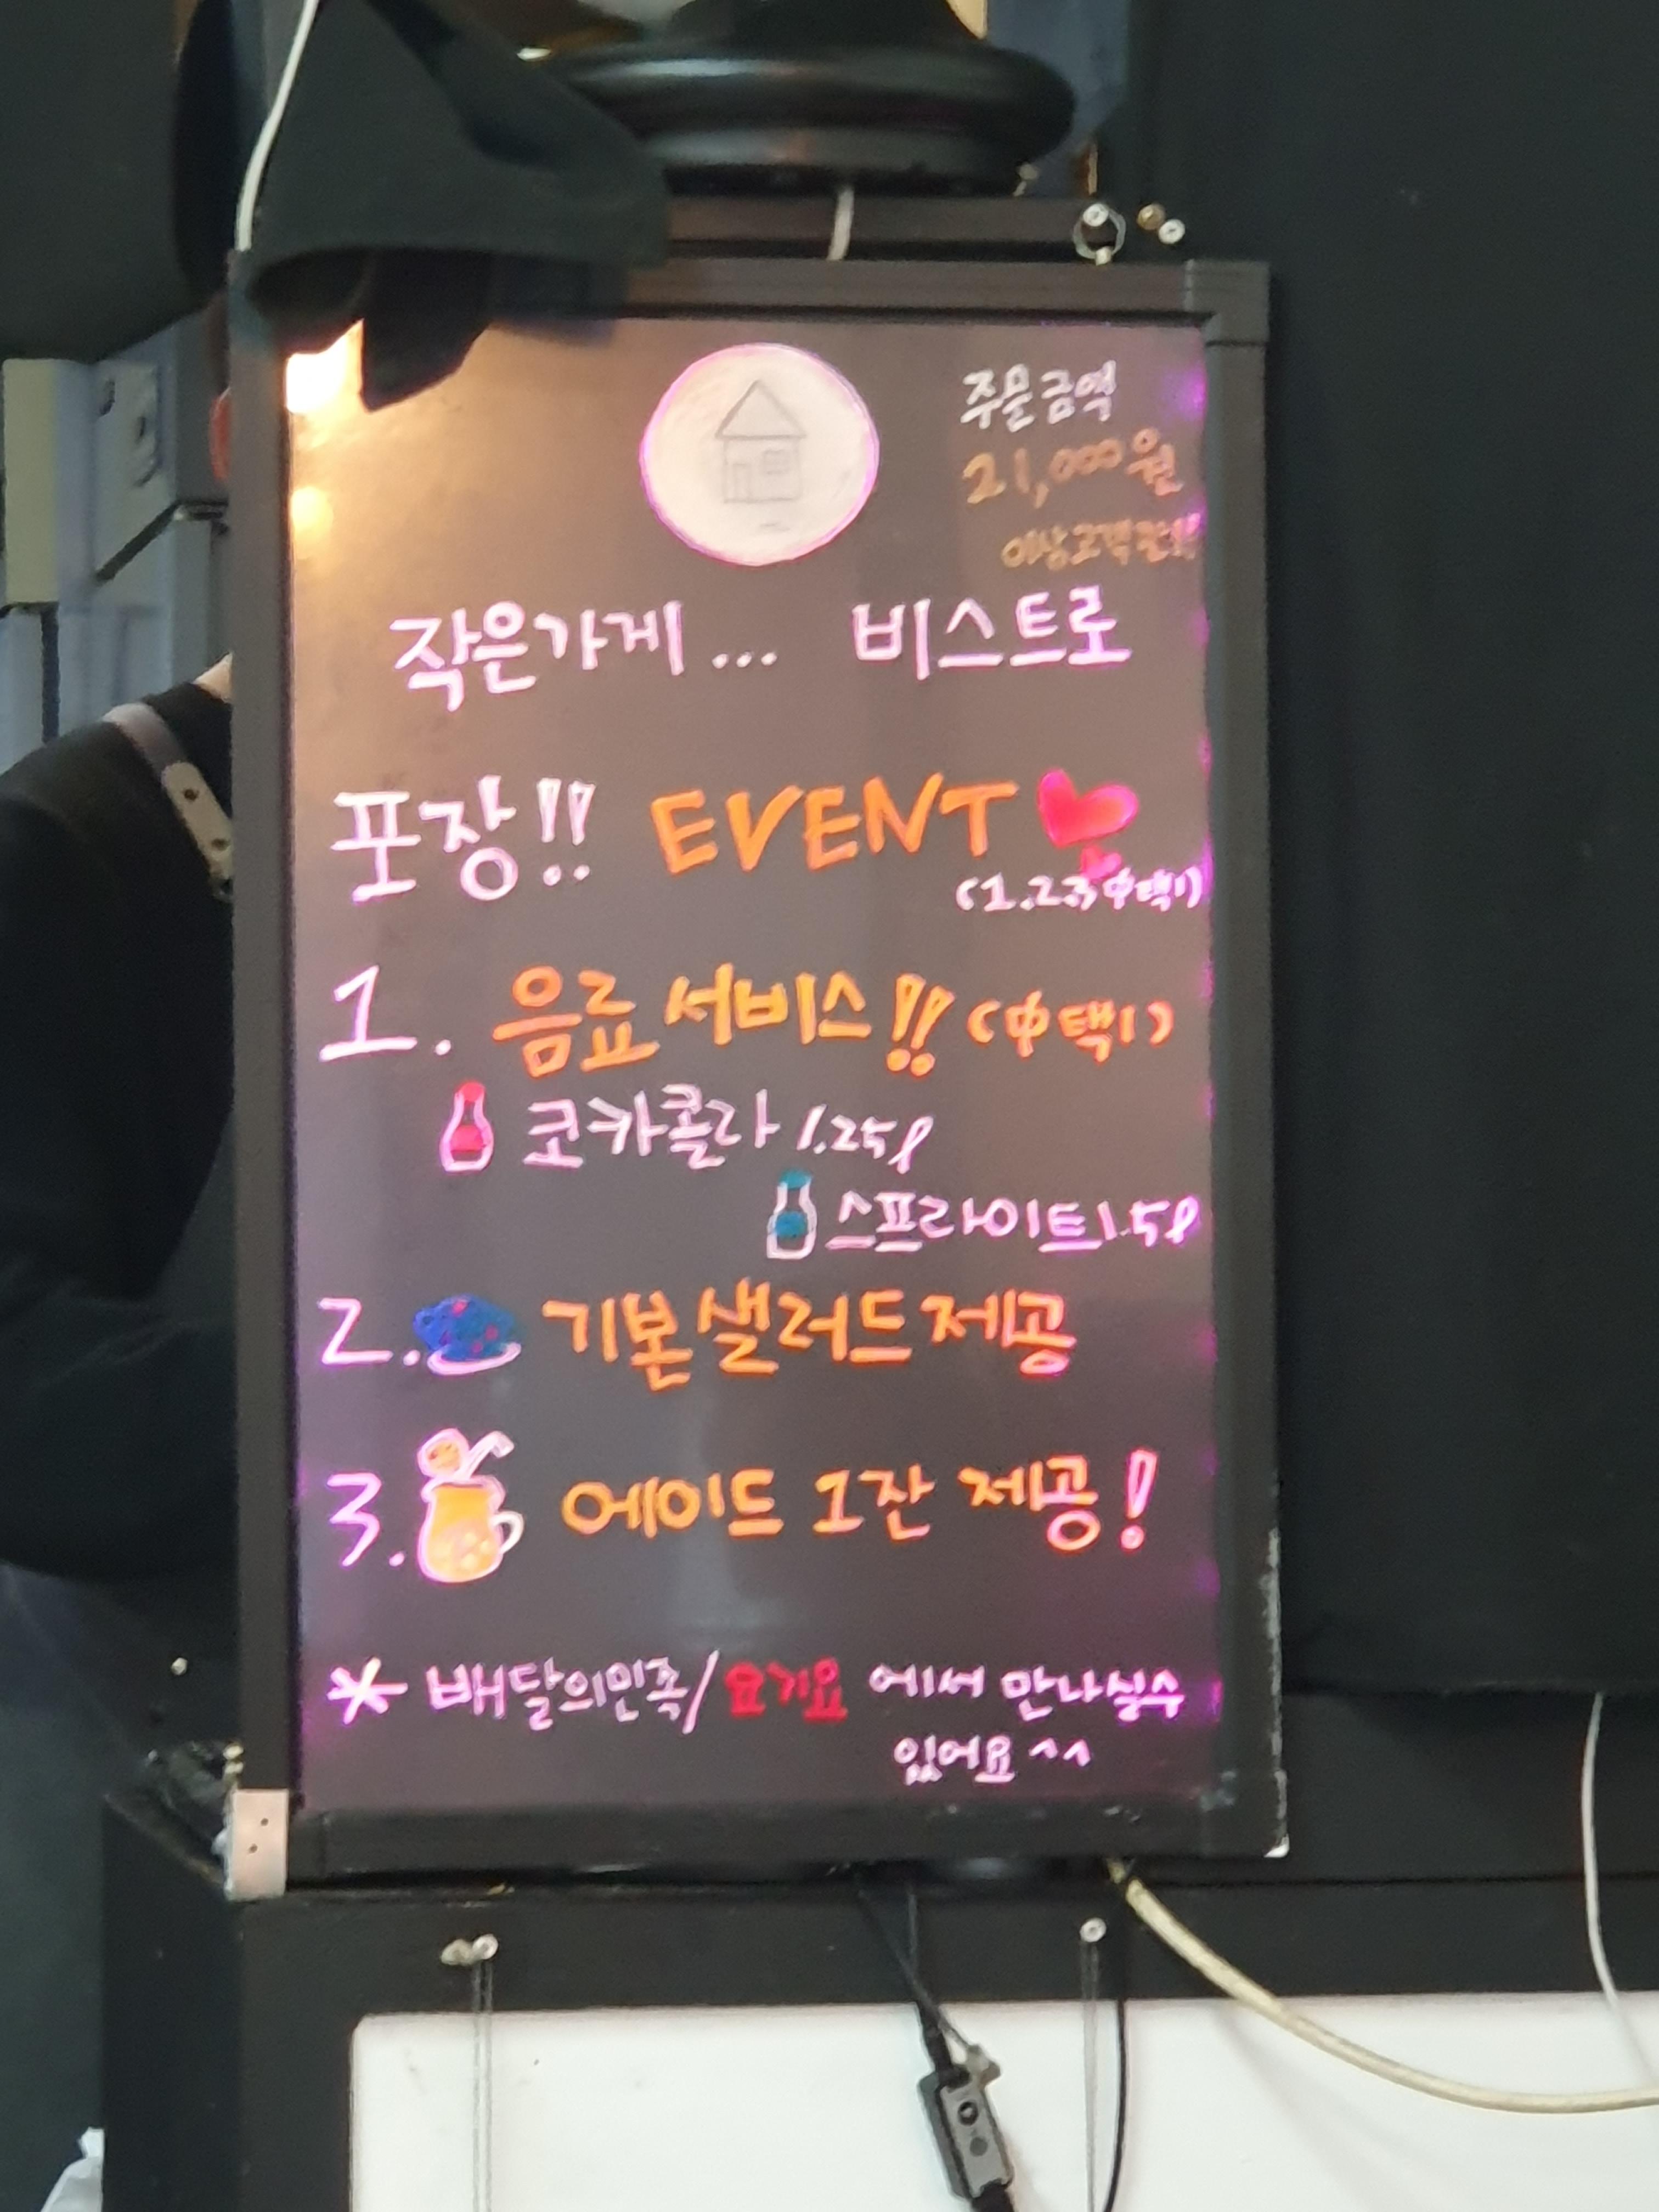 주문금액
21,000원
이상고객한해
작은가게... 비스트로
포장!! EVENT
(1.2.3中택1)
1. 음료서비스!! (中택1)
코카콜라 1.25ℓ
스프라이트1.5ℓ
2. 기본샐러드제공
3. 에이드 1잔 제공!
* 배달의민족/요기요 에서 만나실수
있어요^^